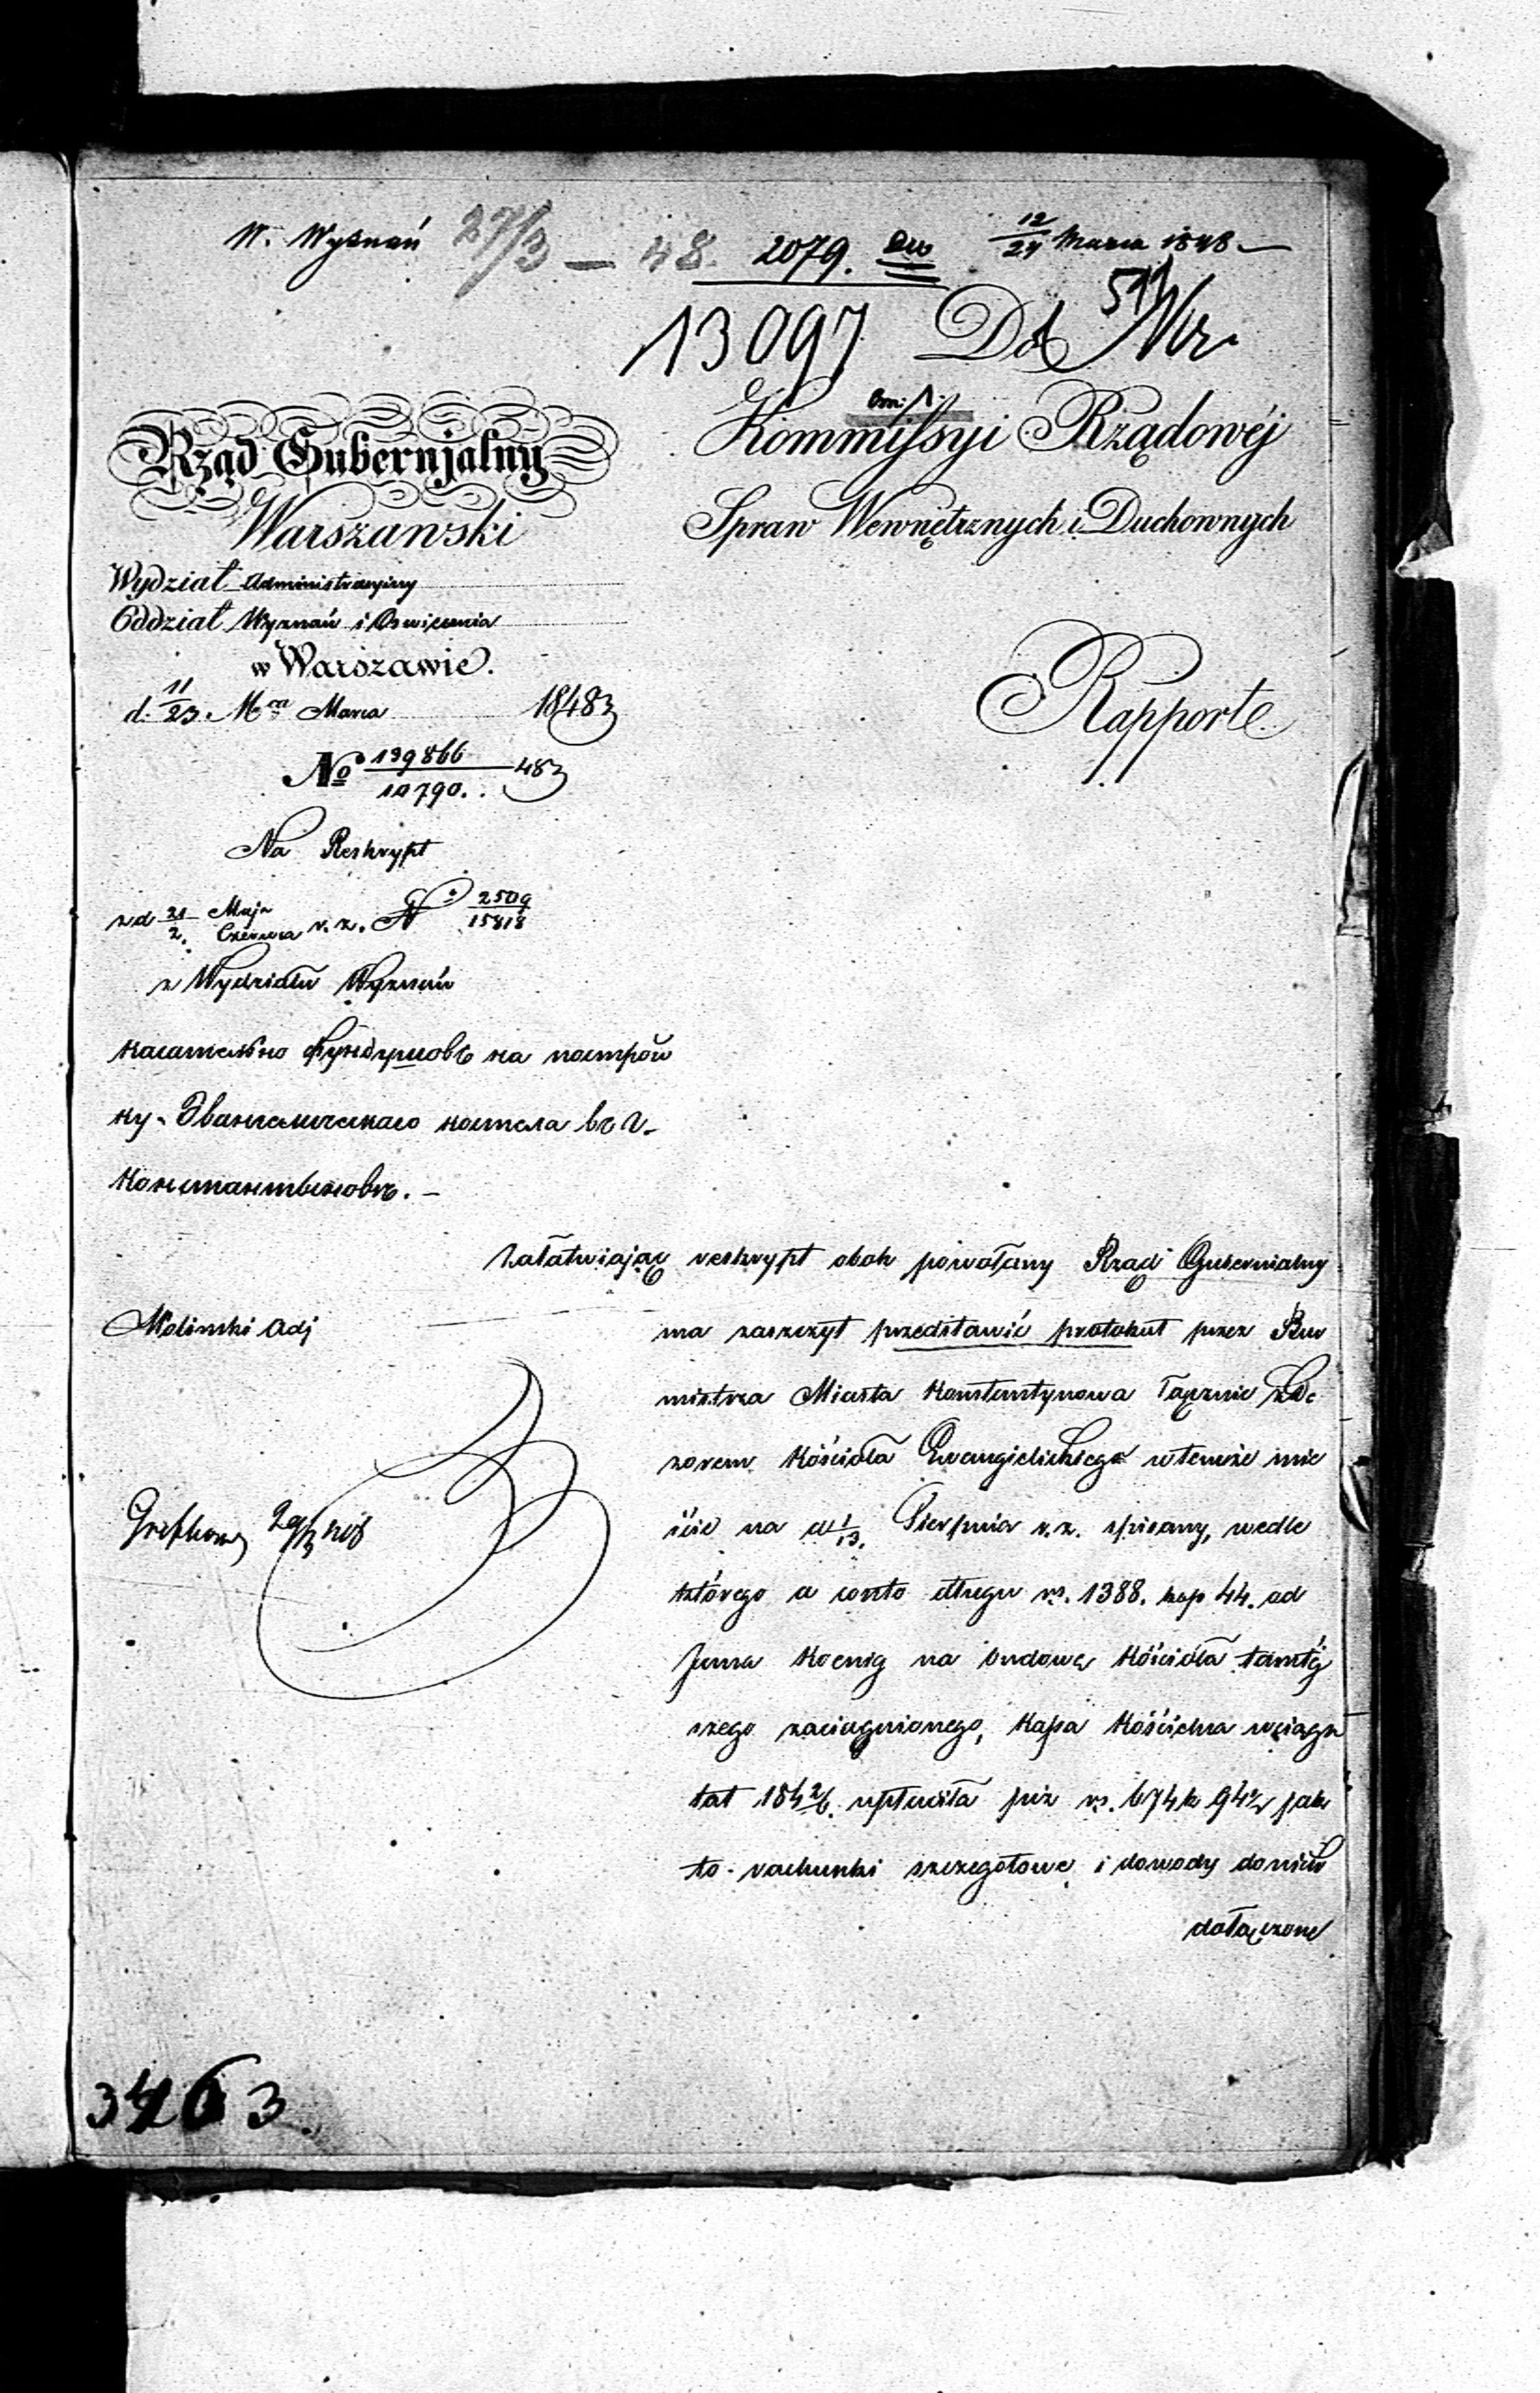 W. Wyznań 27/3 — 48. 2079. 12/24 Marca 1848 —
13097 Do
Kommissyi Rządowéj
Spraw Wewnętrznych i Duchownych
Rapport
Rząd Gubernjalny
Warszawski
Wydział Administracyjny
Oddział Wyznań i Oswiecenia
w Warszawie.
d. 11/23 Mca Marca 1848
No 139866/10790. 48
Na Reskrypt
z d 21/2. Maja/Czerwca r. z. N 2509/15818
z Wydziału Wyznań
касательно фундушовъ на построй
ку Эвангелическаго костела въ г.
Константыновѣ. —
Załatwiając reskrypt obok powołany Rząd Gubernialny
ma zaszczyt przedstawić protokuł przez Bur
mistrza Miasta Konstantynowa łącznie z Do
zorem Kościoła Ewangielickiego w temże mie
ście na d 1/13. Sierpnia r. z. spisany, wedle
którego a conto długu rs. 1388. kop 44. od
Jana Koenig na budowę Kościoła tamtéj
szego zaciągnionego, Kassa Kościelna w ciągu
lat 184 2/6. upłaciła już rs. 674 k 94 1/2 jak
to rachunki szczegołowe i dowody do nich
dołączone
Molinski Adj
3463